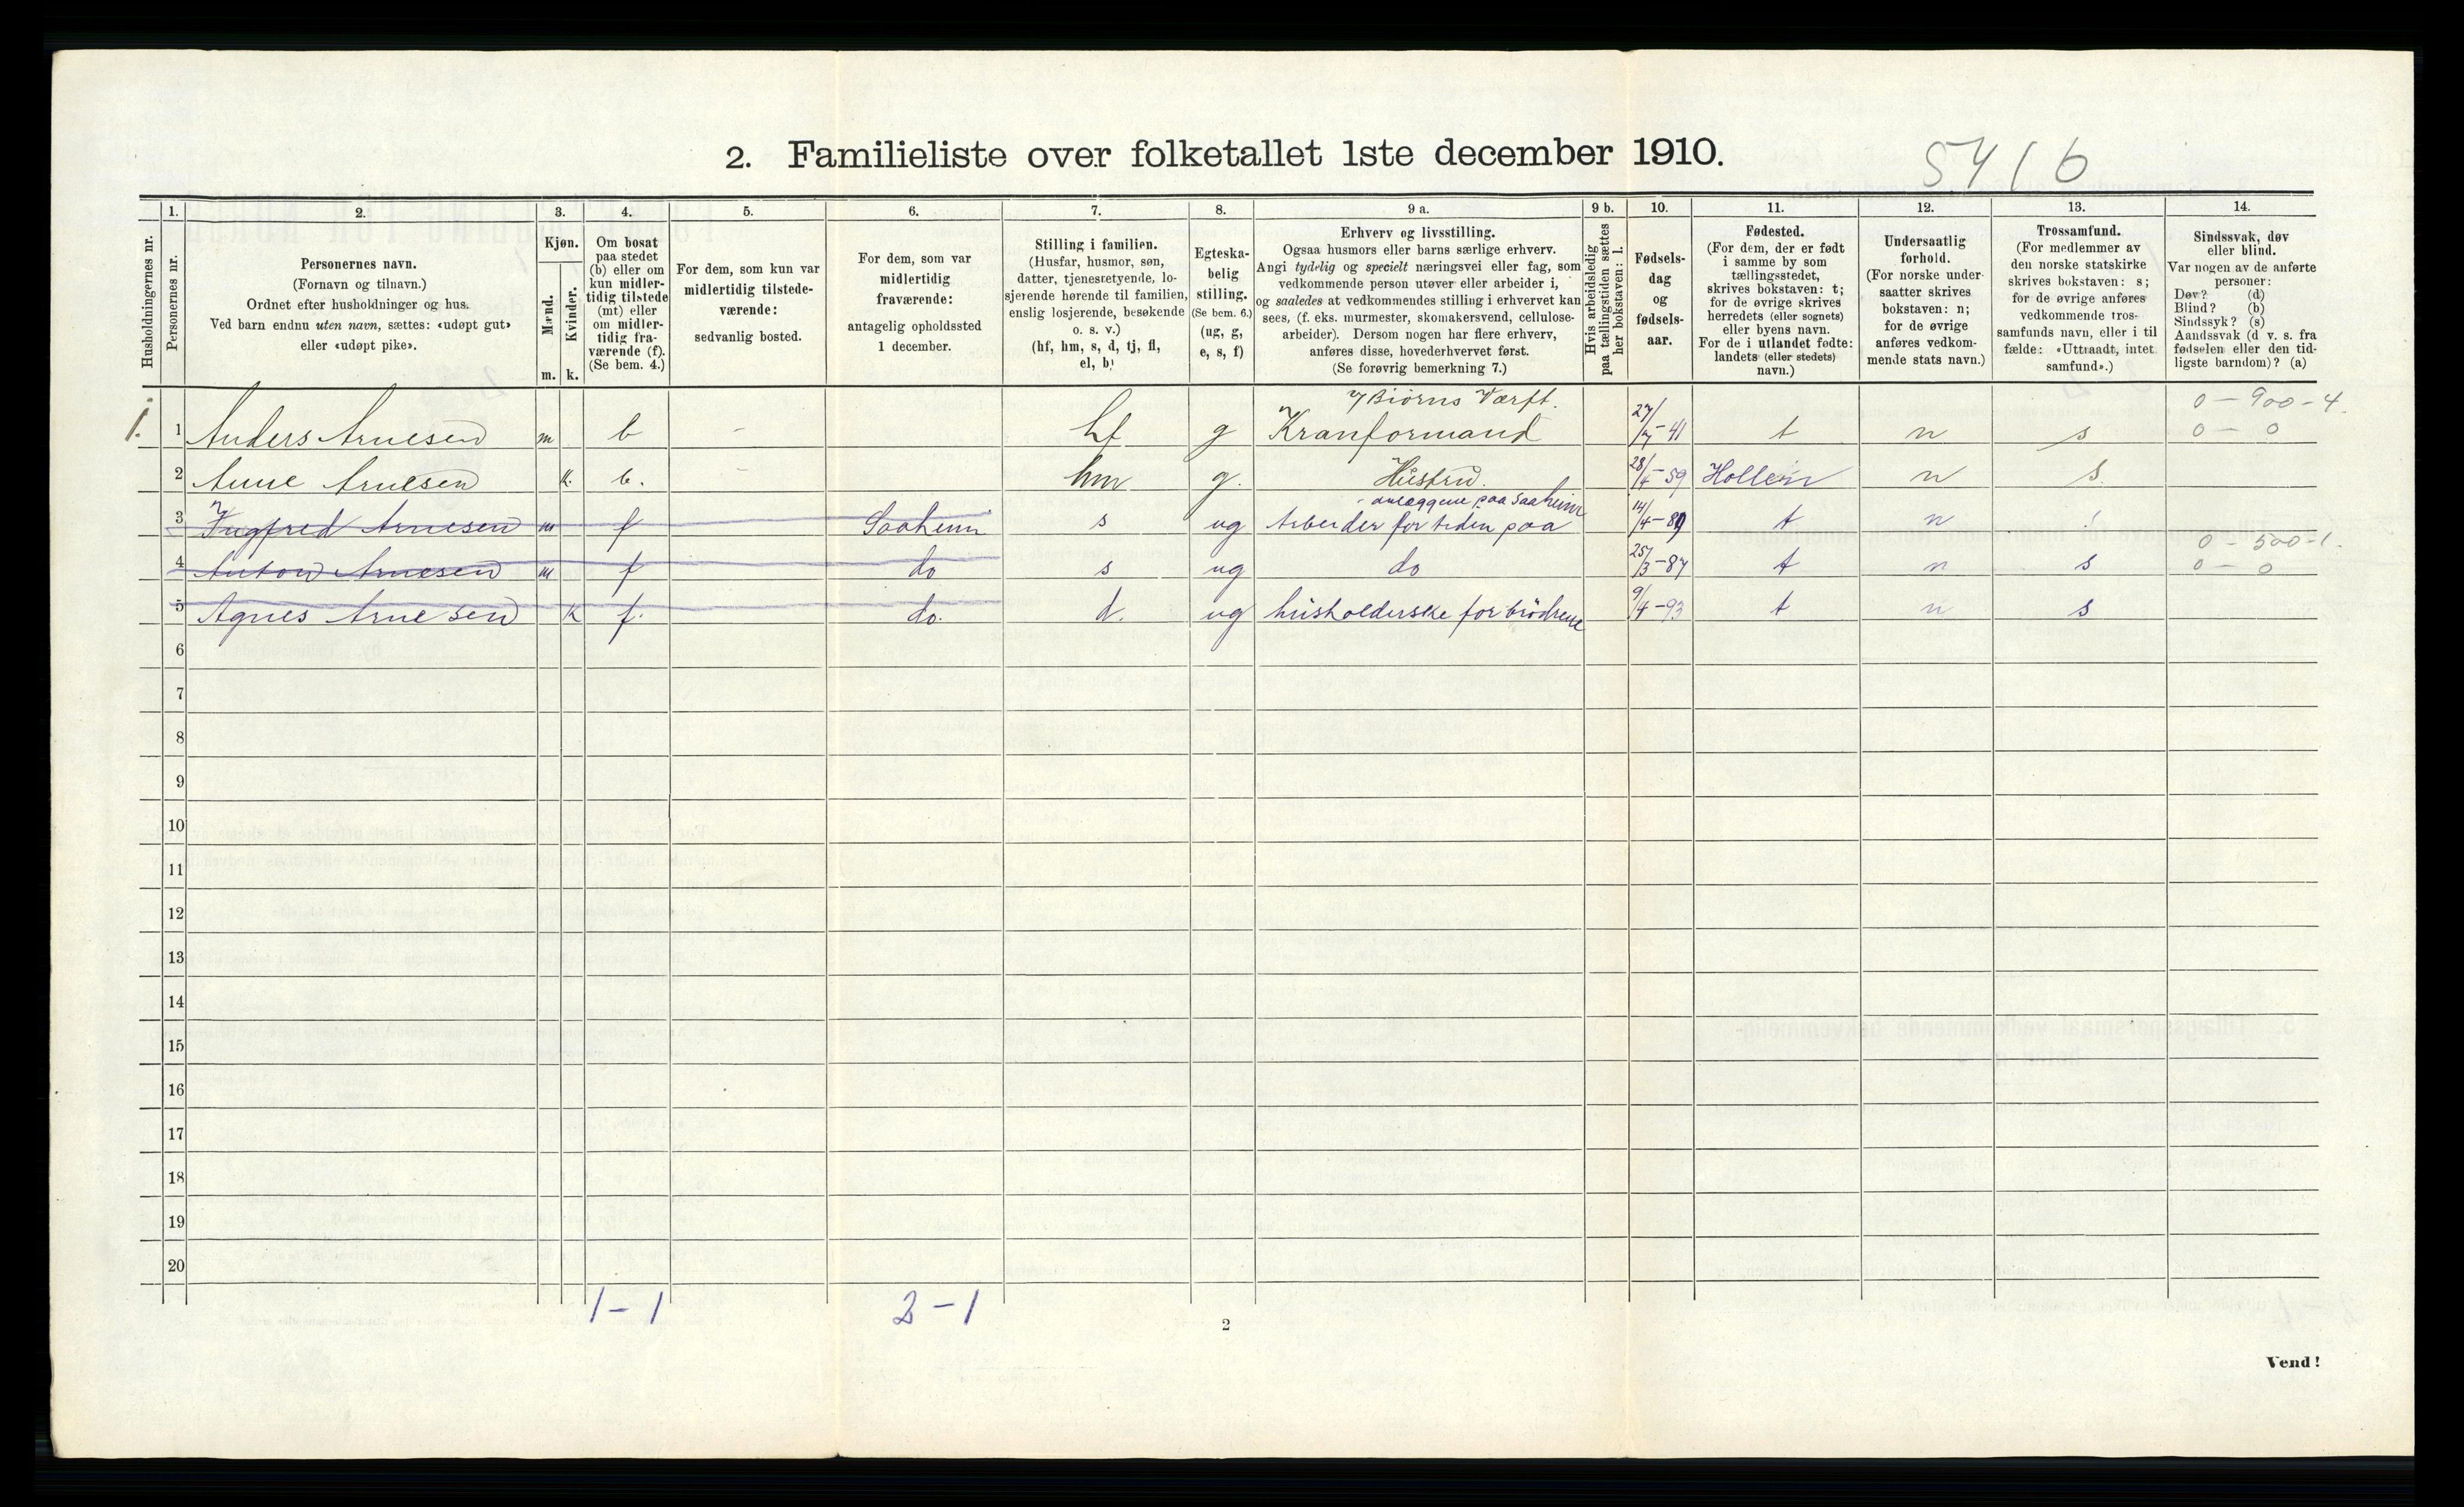 2. Familieliste over folketallet 1ste december 1910.
5416
Husholdningernes nr.
1.
Personernes nr.
2.
Personernes navn.
(Fornavn og tilnavn.)
Ordnet efter husholdninger og hus.
Ved barn endnu uten navn, sættes: «udøpt gut»
eller «udøpt pike».
3.
Kjøn.
Mænd.
Kvinder.
m. k.
4.
Om bosat
paa stedet
(b) eller om
kun midler-
tidig tilstede
(mt) eller
om midler-
tidig fra-
værende (f).
(Se bem. 4.)
5.
For dem, som kun var
midlertidig tilstede-
værende:
sedvanlig bosted.
6.
For dem, som var
midlertidig
fraværende:
antagelig opholdssted
1 december.
7.
Stilling i familien.
(Husfar, husmor, søn,
datter, tjenestetyende, lo-
sjerende hørende til familien,
enslig losjerende, besøkende
o. s. v.)
(hf, hm, s, d, tj, fl,
el, b)
8.
Egteska-
belig
stilling.
(Se bem. 6.)
(ug, g,
e, s, f)
9 a.
Erhverv og livsstilling.
Ogsaa husmors eller barns særlige erhverv.
Angi tydelig og specielt næringsvei eller fag, som
vedkommende person utøver eller arbeider i,
og saaledes at vedkommendes stilling i erhvervet kan
sees, (f. eks. murmester, skomakersvend, cellulose-
arbeider). Dersom nogen har flere erhverv,
anføres disse, hovederhvervet først.
(Se forøvrig bemerkning 7.)
9 b.
Hvis arbeidsledig
paa tællingstiden sættes
her bokstaven: l.
10.
Fødsels-
dag
og
fødsels-
aar.
11.
Fødested.
(For dem, der er født
i samme by som
tællingsstedet,
skrives bokstaven: t;
for de øvrige skrives
herredets (eller sognets)
eller byens navn.
For de i utlandet fødte:
landets (eller stedets)
navn.)
12.
Undersaatlig
forhold.
(For norske under-
saatter skrives
bokstaven: n;
for de øvrige
anføres vedkom-
mende stats navn.)
13.
Trossamfund.
(For medlemmer av
den norske statskirke
skrives bokstaven: s;
for de øvrige anføres
vedkommende tros-
samfunds navn, eller i til
fælde: «Uttraadt, intet
samfund».)
14.
Sindssvak, døv
eller blind.
Var nogen av de anførte
personer:
Døv? (d)
Blind? (b)
Sindssyk? (s)
Aandssvak (d v. s. fra
fødselen eller den tid-
ligste barndom)? (a)
Biørns Værft. 0 - 900 - 4.
1. 1 Anders Arnesen m b - hf g Kranformand 27/7-41 t n s 0 - 0
2 Anne Arnesen k. b. - hm g. Hüstrü. 28/4-59 Hollen n s.
anlæggene paa Saaheim
3 Ingfred Arnesen m f Saaheim s ug Arbeider for tiden paa 14/4-89 t n
0 - 500-1.
4 Anton Arnesen m f do s ug do 25/3-87 t n s 0 - 0
5 Agnes Arnesen k f. do. d. ug hüsholderske for brödrene 9/4-93 t n s
6
7
8
9
10
11
12
13
14
15
16
17
18
19
20
1-1 2-1
2
Vend!